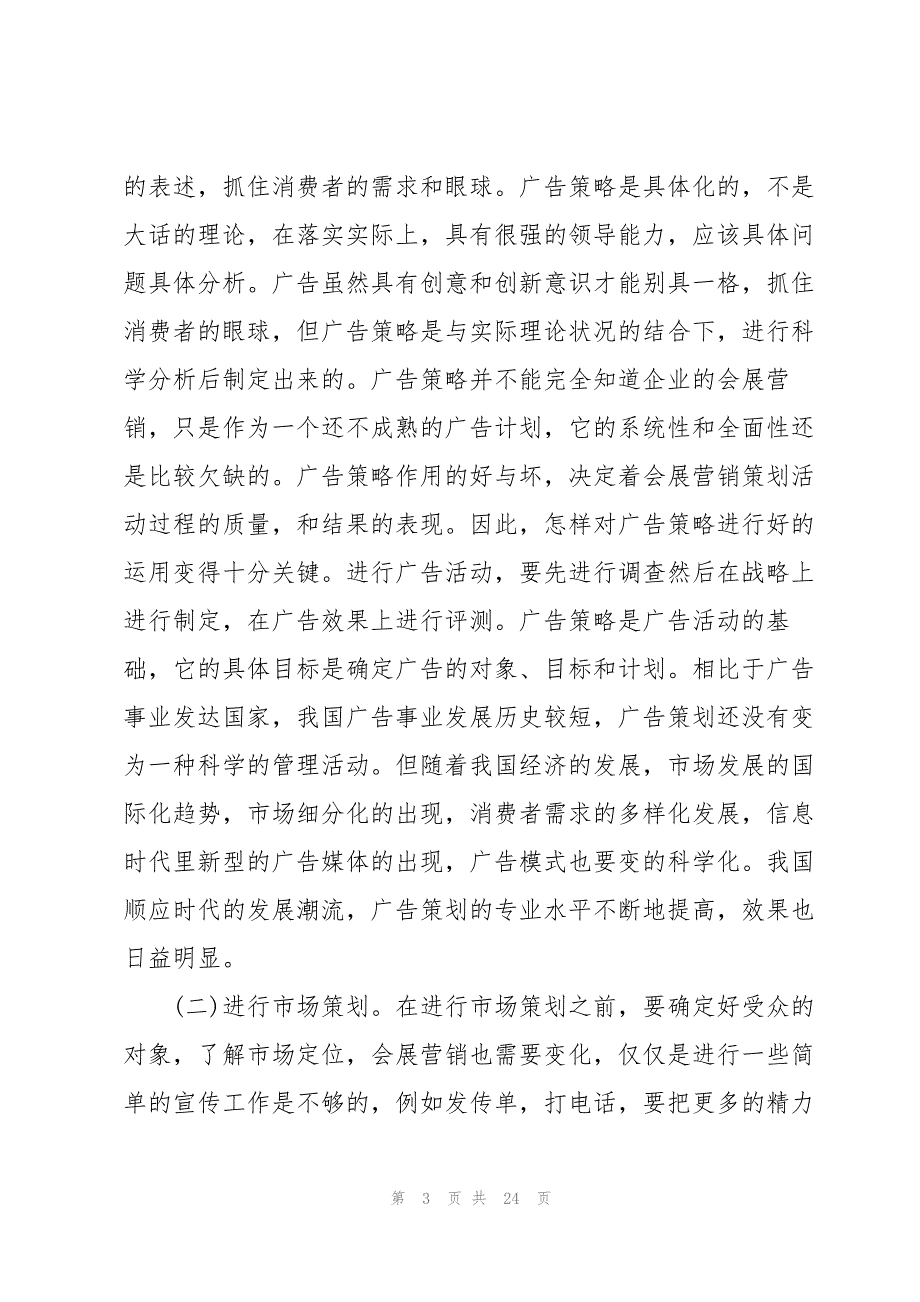 的表述，抓住消费者的需求和眼球。广告策略是具体化的，不是
大话的理论，在落实实际上，具有很强的领导能力，应该具体问
题具体分析。广告虽然具有创意和创新意识才能别具一格，抓住
消费者的眼球，但广告策略是与实际理论状况的结合下，进行科
学分析后制定出来的。广告策略并不能完全知道企业的会展营
销，只是作为一个还不成熟的广告计划，它的系统性和全面性还
是比较欠缺的。广告策略作用的好与坏，决定着会展营销策划活
动过程的质量，和结果的表现。因此，怎样对广告策略进行好的
运用变得十分关键。进行广告活动，要先进行调查然后在战略上
进行制定，在广告效果上进行评测。广告策略是广告活动的基
础，它的具体目标是确定广告的对象、目标和计划。相比于广告
事业发达国家，我国广告事业发展历史较短，广告策划还没有变
为一种科学的管理活动。但随着我国经济的发展，市场发展的国
际化趋势，市场细分化的出现，消费者需求的多样化发展，信息
时代里新型的广告媒体的出现，广告模式也要变的科学化。我国
顺应时代的发展潮流，广告策划的专业水平不断地提高，效果也
日益明显。
(二)进行市场策划。在进行市场策划之前，要确定好受众的
对象，了解市场定位，会展营销也需要变化，仅仅是进行一些简
单的宣传工作是不够的，例如发传单，打电话，要把更多的精力
第 3 页 共 24 页